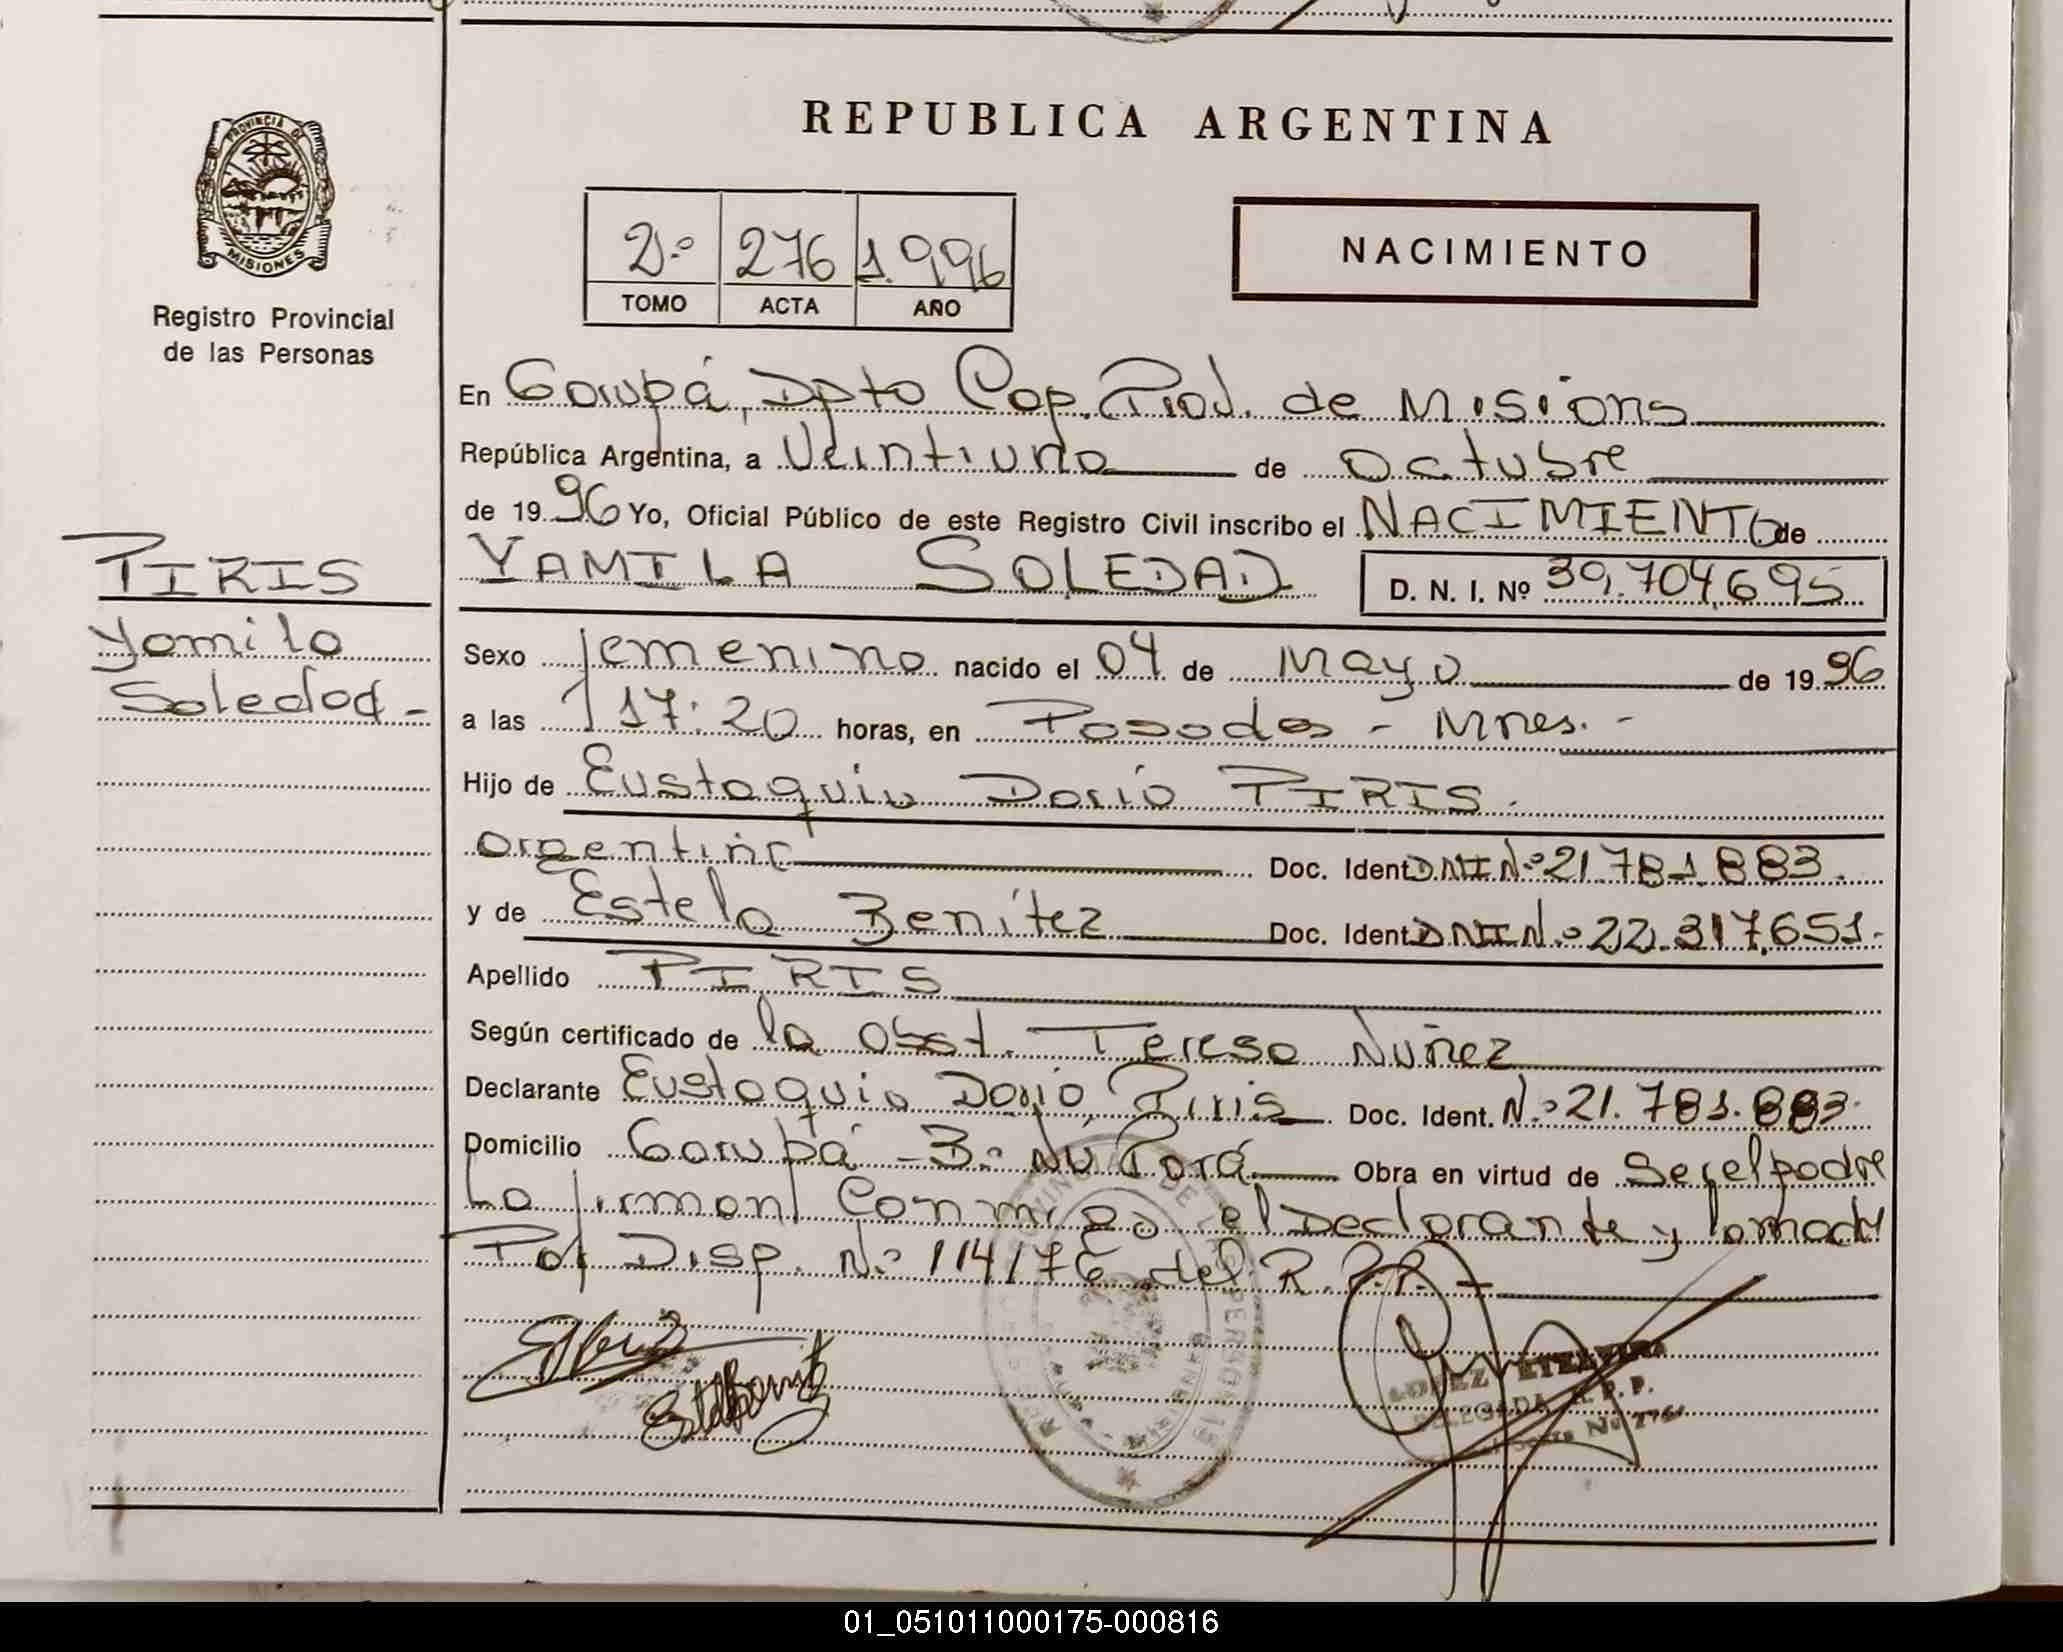 REPUBLICA ARGENTINA
PROVINCIA DE
MISIONES
Registro Provincial
de las Personas
2º 276 1.996
TOMO ACTA AÑO
NACIMIENTO
En Garupá, Dpto Cap. Prov. de Misions
República Argentina, a Veintiuno de Octubre
de 1996 Yo, Oficial Público de este Registro Civil inscribo el NACIMIENTO de
YAMILA SOLEDAD D. N. I. Nº 39.704.695
PIRIS
Yamila
Soledad -
Sexo femenino nacido el 04 de Mayo de 1996
a las 17:20 horas, en Posadas - Mnes. -
Hijo de Eustaquio Dario PIRIS.
argentino Doc. Ident DNI Nº 21.781.883.
y de Estela Benítez Doc. Ident DNI Nº 22.317.651.-
Apellido PIRIS
Según certificado de la Obst. Teresa Nuñez
Declarante Eustaquio Dario Piris Doc. Ident. Nº 21.781.883.
Domicilio Garupá - Bº Ñu Porá Obra en virtud de Ser el padre
La firman Conmigo el Declarante y la madre
Por Disp. Nº 114/76 del R.P.P. -
LOPEZ ETELVINA
DELEGADA R. P. P.
01_051011000175-000816